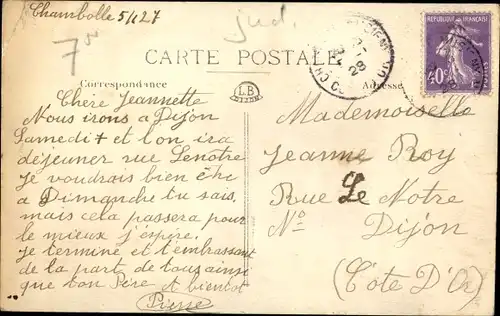 Chambolle 5/1 27
jud.
7
CARTE POSTALE
Correspondance
Adresse
L B
RÉPUBLIQUE FRANÇAISE
40c
Chère Jeannette
Nous irons a Dijon
Samedi + et l'on ira
déjeuner rue Lenotre
je voudrais bien être
a Dimanche tu sais,
mais cela passera pour
le mieux j'éspère.
je termine et t'embrassant
de la part de tous ainsi
que ton Père a bientot
Pierre
Mademoiselle
Jeanne Roy
Rue Le Notre
No
Dijon
(Côte D'Or)